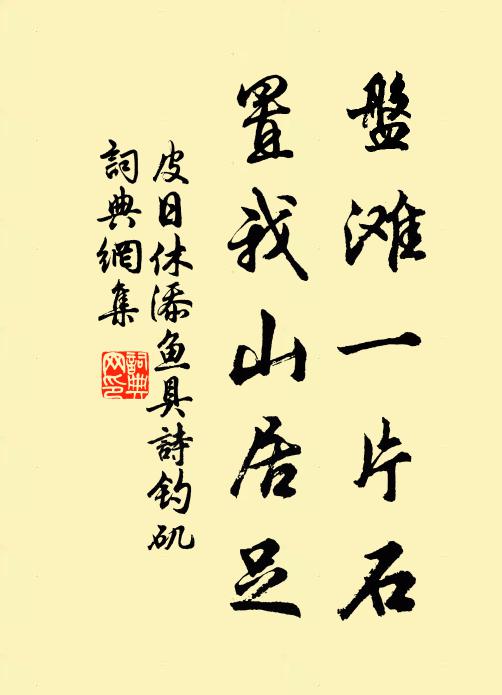 盤滩一片石
置我山居足
皮日休添鱼具詩钓矶
詞典網集
詞典
网印